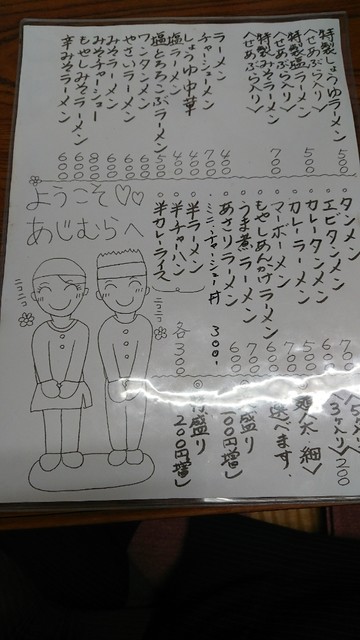 特製しょうゆラーメン
〈せあぶら入り〉 500
特製塩ラーメン
〈せあぶら入り〉 500
特製みそラーメン
〈せあぶら入り〉 700
ラーメン 400
チャーシューメン 700
しょうゆ中華 400
塩ラーメン 400
塩とろろこぶラーメン 500
ワンタンメン 600
やさいラーメン 600
みそラーメン 600
みそチャーシュー 800
もやしみそラーメン 600
辛みそラーメン 600
ようこそ♡♡
あじむらへ
ニコニコ
ニコニコ
。タンメン
。エビタンメン
。カレータンメン
。カレーラーメン
。マーボーメン
。もやしあんかけラーメン
。うま煮ラーメン
。あさりラーメン
ミニチャーシュー丼 300.
。半ラーメン
。半チャーハン
。半カレーライス
各300
太・細〉
選べます.
盛り
100円増〉
盛り
200円増〉